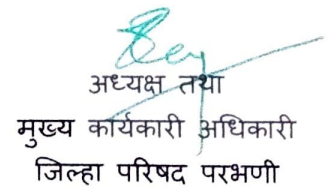 अध्यक्ष तथा
मुख्य कार्यकारी अधिकारी
जिल्हा परिषद परभणी